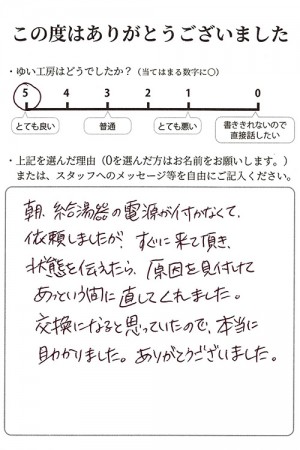 この度はありがとうございました
・ゆい工房はどうでしたか？（当てはまる数字に○）
5 4 3 2 1 0
とても良い 普通 とても悪い 書ききれないので直接話したい
・上記を選んだ理由（0を選んだ方はお名前をお願いします。）
または、スタッフへのメッセージ等を自由にご記入ください。
朝、給湯器の電源が付かなくて、
依頼しましたが、すぐに来て頂き、
状態を伝えたら、原因を見付けて
あっという間に直してくれました。
交換になると思っていたので、本当に
助かりました。ありがとうございました。